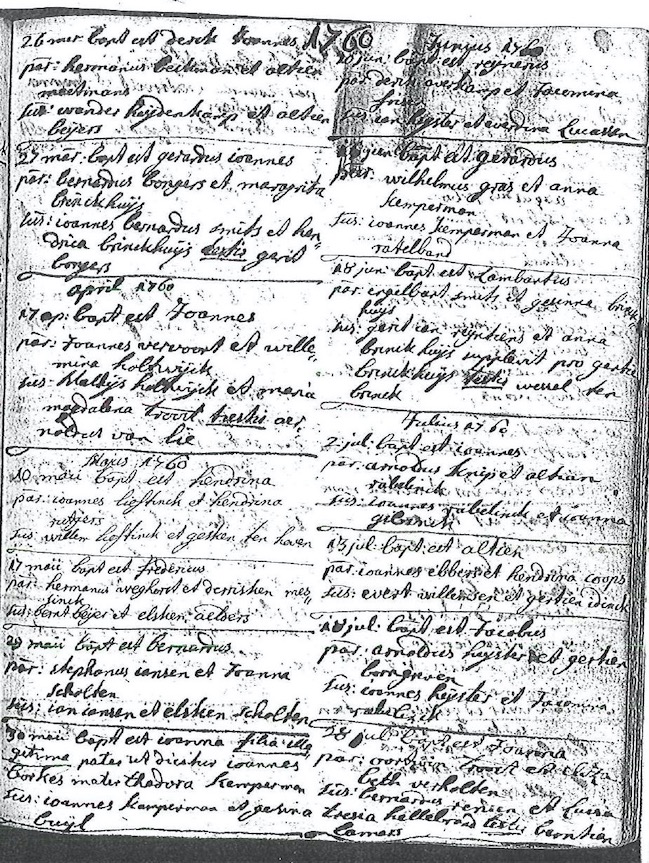 1760
26 mer: bapt est derck Joannes
par: hermanus beekman et altien
meetmans
sus: wander heijdenkamp et altien
beijers
27 mar: bapt est gerardus ioannes
par: bernardus bongers et margrita
brinckhuijs
sus: ioannes bernardus smits et hen„
drica brinckhuijs testis gerit
bongers
april 1760
17 ap: bapt est Joannes
par: Joannes vervoort et wille„
mina holtwijck
sus: Mathijs holtwijck et maria
magdalena troost testis aer„
noldus van lie
Majus 1760
10 maii bapt est hendrina
par: ioannes lieftinck et hendrina
rutgers
sus: willem lieftinck et gesken ten haven
17 maii bapt est frederius
par: hermanus weghorst et derrisken mes„
sinck
sus: bernt beijer et elsken aelbers
29 maii bapt est bernardus
par: stephanus iansen et Joanna
scholten
sus: ian iansen et elsken scholten
30 maii bapt est ioanna filia ille„
gitima pater ut dicitur ioannes
borkes mater thedora kemperman
sus: ioannes kemperman et gesina
buijl
Junius 1760
jun: bapt est reijnerus
par: derck overkamp et Jacomina
sus: ian huijster et everdina Lucassen
jun: bapt est gerardus
par: wilhelmus gras et anna
kemperman
sus: ioannes kemperman et Joanna
ratelband
18 jun: bapt est Lambartus
par: engelbart smits et geesina brinck
huijs
sus: gerit ian reintiens et anna
brinckhuijs supplevit pro gertie
brinckhuijs testis wessel ten
brinck
Julius 1760
2 jul: bapt est ioannes
par: arnodus knip et altien
rabelinck
sus: ioannes rabelinck et ioanna
13 jul: bapt est altien
par: ioannes ebbers et hendrina coops
sus: evert willemsen et gertien idinck
18 jul: bapt est Jacobus
par: arnoldus huijster et gertien
borngreven
sus: ioannes huijster et Jacomina
rabelinck
28 jul: bapt est Joanna
par: troost et eliza„
beth verholten
sus: bernardus rensen et Luisa
tresia hellebrad testis berntien
Lamers